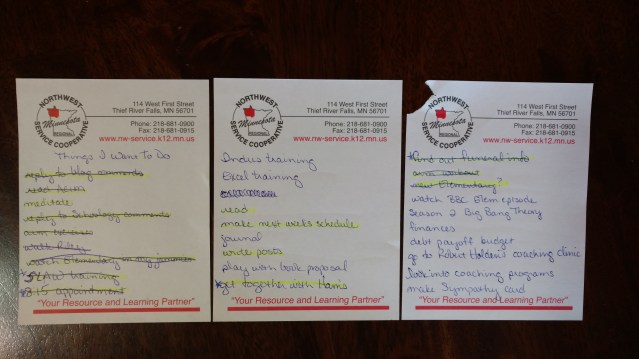 NORTHWEST
Minnesota
SERVICE COOPERATIVE
114 West First Street
Thief River Falls, MN 56701
Phone: 218-681-0900
Fax: 218-681-0915
www.nw-service.k12.mn.us
Things I Want To Do
reply to blog comments
read
meditate
reply to Schoology comments
arm
walk Riley
watch Elementary
training
3:15 appointment
"Your Resource and Learning Partner"
NORTHWEST
Minnesota
SERVICE COOPERATIVE
114 West First Street
Thief River Falls, MN 56701
Phone: 218-681-0900
Fax: 218-681-0915
www.nw-service.k12.mn.us
training
Excel training
read
make next week's schedule
journal
write posts
play with book proposal
*get together with
"Your Resource and Learning Partner"
NORTHWEST
Minnesota
SERVICE COOPERATIVE
114 West First Street
Thief River Falls, MN 56701
Phone: 218-681-0900
Fax: 218-681-0915
www.nw-service.k12.mn.us
*find out funeral info
arm workout
new Elementary?
watch BBC episode
season 2 Big Bang Theory
finances
debt payoff budget
go to Robert Holden's coaching clinic
look into coaching programs
make sympathy card
"Your Resource and Learning Partner"